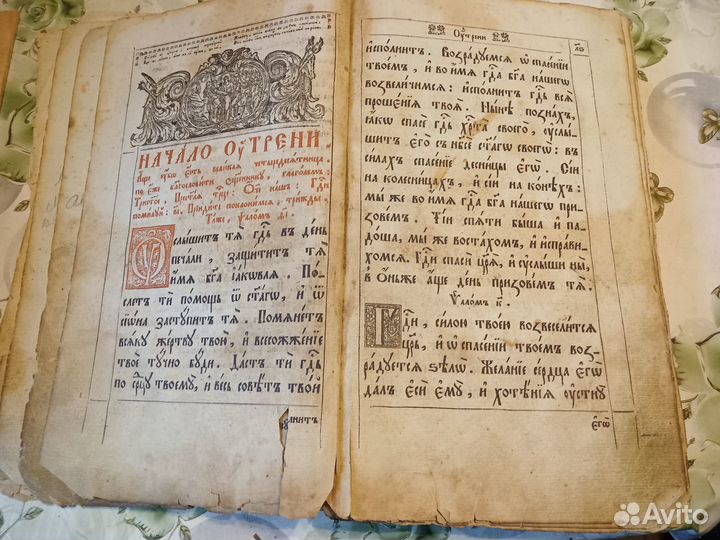 НАЧАЛО ОУ҆ТРЕНИ
Аще оубо есть великая четыредесятница,
Таже, Ѱаломъ,
Оуслышитъ тѧ̀ гдⷭ҇ь въ день
печали, защититъ тѧ̀
и҆мѧ бг҃а і҆а́кѡвлѧ. По́-
слетъ тѝ помощь ѿ ст҃а́гѡ, и҆ ѿ
сїѡ́на застꙋпитъ тѧ̀. Помѧне́тъ
всѧкꙋ жертвꙋ твою̀, и҆ всесожже́нїе
твоѐ тꙋчно бꙋди. Дастъ тѝ гдⷭ҇ь
по срⷣцꙋ твоемꙋ̀, и҆ весь совѣ́тъ тво́й
Оу҆́трени
и҆сполнитъ. Возра́дꙋемсѧ ѡ҆ спасе́нїи
твое́мъ, и҆ во и҆́мѧ гдⷭ҇а бг҃а нашегѡ
возвели́чимсѧ: и҆спо́лнитъ гдⷭ҇ь всѧ̑
проше́нїѧ твоѧ̑. Ны́нѣ позна́хъ,
ꙗ҆́кѡ спасѐ гдⷭ҇ь хрⷭ҇та̀ своего̀, оу҆слы́-
шитъ є҆го̀ съ нб҃сѐ ст҃а́гѡ своегѡ̀: въ
си́лахъ спасе́нїе десни́цы є҆гѡ̀. Сі́и
на колесни́цахъ, и҆ сі́и на ко́нехъ:
мы́ же во и҆́мѧ гдⷭ҇а бг҃а на́шегѡ при-
зове́мъ. Ті́и спѧ́ти бы́ша и҆ па-
до́ша, мы́ же воста́хомъ, и҆ и҆спра́ви-
хомсѧ. Гдⷭ҇и спасѝ цр҃ѧ̀, и҆ оу҆слы́ши ны̀,
в̾ ѻ҆́ньже а҆́ще де́нь призове́мъ тѧ̀.
Ѱало́мъ к҃.
Гдⷭ҇и, си́лою твоею возвесели́тсѧ
цр҃ь, и҆ ѡ҆ спасе́нїи твое́мъ воз-
ра́дꙋетсѧ ѕѣлѡ̀. Жела́нїе се́рдца є҆гѡ̀
да́лъ є҆сѝ є҆мꙋ̀, и҆ хотѣ́нїѧ оу҆стнꙋ̀
є҆гѡ̀
Avito